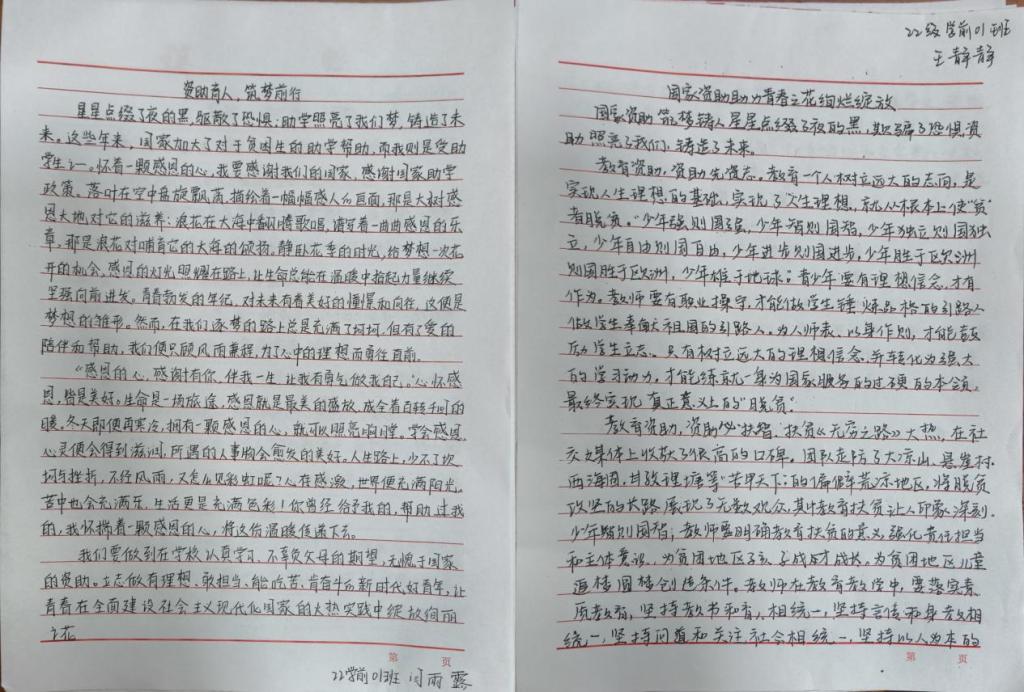 资助育人，筑梦前行
星星点缀了夜的黑，驱散了恐惧；助学照亮了我们梦，铸造了未
来。这些年来，国家加大了对于贫困生的助学帮助，而我则是受助
学生之一。怀着一颗感恩的心，我要感谢我们的国家，感谢国家助学
政策。落叶在空中盘旋飘荡，描绘着一幅幅感人的画面，那是大树感
恩大地对它的滋养；浪花在大海中翻腾歌唱，谱写着一曲曲感恩的乐
章，那是浪花对哺育它的大海的颂扬。静卧花季的时光，给梦想一次花
开的机会，感恩的灯光照耀在路上，让生命总能在温暖中拾起力量继续
坚强向前进发。青春勃发的年纪，对未来有着美好的憧憬和向往，这便是
梦想的雏形。然而，在我们逐梦的路上总是充满了坷坷，但有了爱的
陪伴和帮助，我们便只顾风雨兼程，为了心中的理想而勇往直前。
“感恩的心，感谢有你，伴我一生，让我有勇气做我己。”心怀感
恩，皆是美好。生命是一场旅途，感恩就是最美的盛放，成全着百转千回的
暖。冬天即便再寒冷，拥有一颗感恩的心，就可以照亮胸膛。学会感恩，
心灵便会得到滋润，所遇的人事物会愈发的美好。人生路上，少不了坎
坷与挫折，不经风雨，又怎么见彩虹呢？心存感激，世界便充满阳光，
苦中也会充满乐，生活更是充满色彩！你曾经给予我的，帮助过我
的，我怀揣着一颗感恩的心，将这份温暖传递下去。
我们要做到在学校认真学习，不辜负父母的期望，无愧于国家
的资助。立志做有理想、敢担当、能吃苦、肯奋斗的新时代好青年，让
青春在全面建设社会主义现代化国家的火热实践中绽放绚丽
之花
第 页
22学前01班 闫雨露
22级学前01班
王静静
国家资助助力青春之花绚烂绽放
国家资助 筑梦铸人 星星点缀了夜的黑，驱了恐惧，资
助照亮了我们，铸造了未来。
教育资助，资助先资志。教育一个人树立远大的志向，是
实现人生理想的基础，实现了人生理想，就从根本上使“贫”
者脱贫。“少年强则国强，少年智则国智，少年独立则国独
立，少年自由则国自由，少年进步则国进步，少年胜于欧洲
则国胜于欧洲，少年雄于地球。”青少年要有理想信念，才有
作为。教师要有职业操守，才能做学生锤炼品格的引路人
做学生奉献祖国的引路人，为人师表，以身作则，才能鼓
励学生立志。只有树立远大的理想信念，并转化为强大
的学习动力，才能练就一身为国家服务的过硬的本领，
最终实现真正意义上的“脱贫”
教育资助，资助必扶智。扶贫《无穷之路》大热，在社
交媒体上收获了很高的口碑。团队走访了大凉山、悬崖村、
西海固，甘孜理塘等“苦甲天下”的偏僻荒凉地区，将脱贫
攻坚的共路展现了无数观众，其中教育扶贫让人印象深刻。
少年智则国智，教师要明确教育扶贫的意义，强化责任担当
和主体意识，为贫困地区孩子成才成长，为贫困地区儿童
追梦圆梦创造条件。教师在教育教学中，要落实素
质教育，坚持教书和育人相统一，坚持言传和身教相
统一，坚持问道和关注社会相统一，坚持以人为本的
第 页